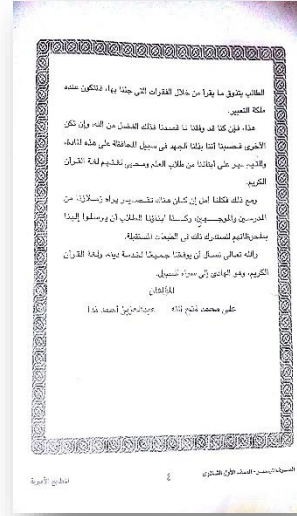 الطالب يتذوق ما يقرأ من خلال الفقرات التى جئنا بها، فتتكون عنده
ملكة التعبير.
هذا، فإن كنا قد وفقنا ما قصدنا فذلك الفضل من الله، وإن تكن
الأخرى فحسبنا أننا بذلنا الجهد فى سبيل المحافظة على هذه المادة،
على أبنائنا من طلاب العلم ومحبى لغتهم لغة القرآن
الكريم.
ومع ذلك فكلنا أمل إن كان هناك تقصير يراه زملاؤنا من
المدرسين والموجهين، وكذا أبناؤنا الطلاب أن يرسلوا إلينا
بملاحظاتهم لنستدرك ذلك فى الطبعات المستقبلة.
والله تعالى نسأل أن يوفقنا جميعًا لخدمة دينه، ولغة القرآن
الكريم، وهو الهادى إلى سواء السبيل.
المؤلفان
على محمد فتح الله عبدالعزيز أحمد ندا
الصف الأول الثانوى
٤
المطابع الأميرية